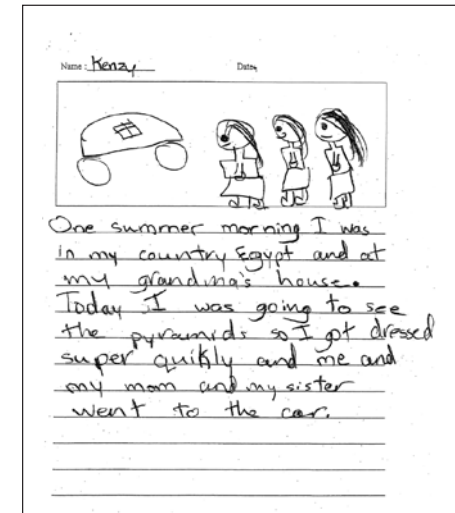 Name: Kenzy Date:
One summer morning I was
in my country Egypt and at
my grandma's house.
Today I was going to see
the pyramids so I got dressed
super quikly and me and
my mom and my sister
went to the car.